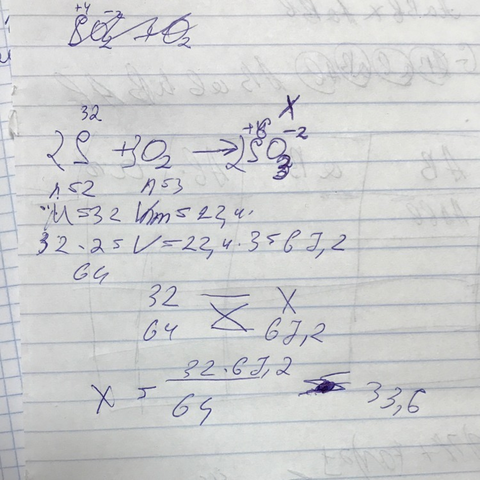 32 X
2S + 3O₂ → 2SO₃
n=2 n=3
M=32 Vm=22,4.
32·2= V=22,4·3=67,2
64
32 = X
64 67,2
X = 32·67,2 / 64 = 33,6